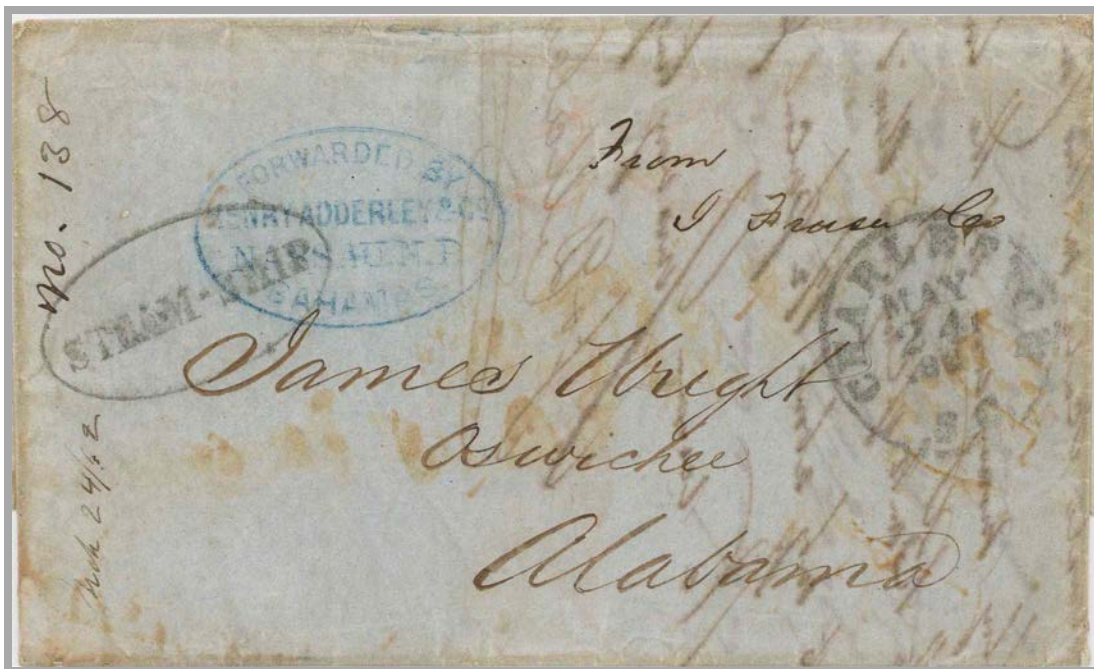 No. 138
FORWARDED BY
HENRY ADDERLEY & Co
NASSAU N.P.
BAHAMAS
STEAM-SHIP
From
J Fraser & Co
CHARLESTON
MAY
24
James Wright
Oswichee
Alabama
Mch 24/62